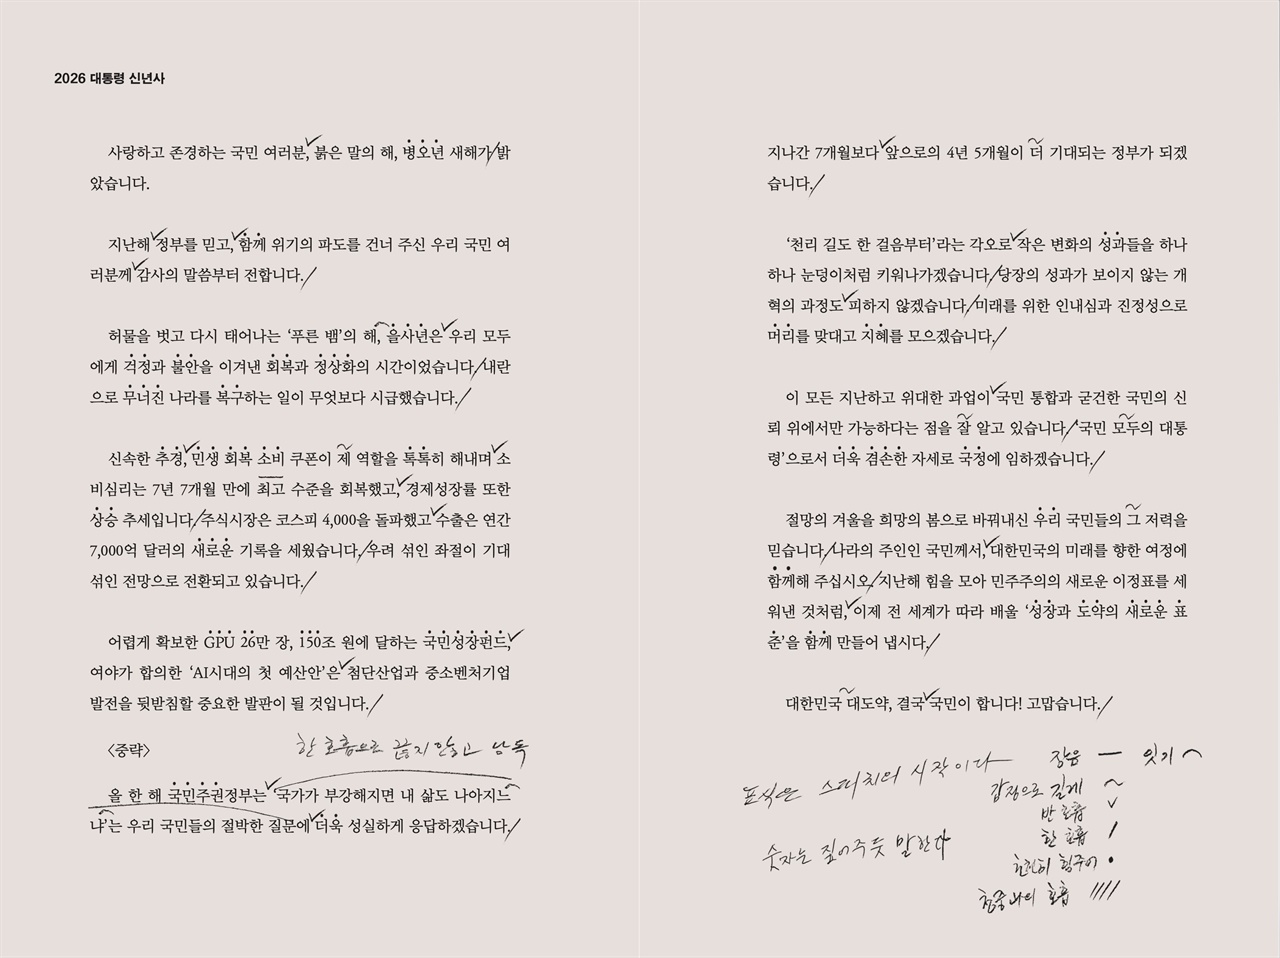 2026 대통령 신년사
사랑하고 존경하는 국민 여러분, 붉은 말의 해, 병오년 새해가 밝
았습니다.
지난해 정부를 믿고, 함께 위기의 파도를 건너 주신 우리 국민 여
러분께 감사의 말씀부터 전합니다.
허물을 벗고 다시 태어나는 ‘푸른 뱀’의 해, 을사년은 우리 모두
에게 걱정과 불안을 이겨낸 회복과 정상화의 시간이었습니다. 내란
으로 무너진 나라를 복구하는 일이 무엇보다 시급했습니다.
신속한 추경, 민생 회복 소비 쿠폰이 제 역할을 톡톡히 해내며 소
비심리는 7년 7개월 만에 최고 수준을 회복했고, 경제성장률 또한
상승 추세입니다. 주식시장은 코스피 4,000을 돌파했고 수출은 연간
7,000억 달러의 새로운 기록을 세웠습니다. 우려 섞인 좌절이 기대
섞인 전망으로 전환되고 있습니다.
어렵게 확보한 GPU 26만 장, 150조 원에 달하는 국민성장펀드,
여야가 합의한 ‘AI시대의 첫 예산안’은 첨단산업과 중소벤처기업
발전을 뒷받침할 중요한 발판이 될 것입니다.
〈중략〉
한 호흡으로 끊지 않고 낭독
올 한 해 국민주권정부는 ‘국가가 부강해지면 내 삶도 나아지느
냐’는 우리 국민들의 절박한 질문에 더욱 성실하게 응답하겠습니다.
지나간 7개월보다 앞으로의 4년 5개월이 더 기대되는 정부가 되겠
습니다.
‘천리 길도 한 걸음부터’라는 각오로 작은 변화의 성과들을 하나
하나 눈덩이처럼 키워나가겠습니다. 당장의 성과가 보이지 않는 개
혁의 과정도 피하지 않겠습니다. 미래를 위한 인내심과 진정성으로
머리를 맞대고 지혜를 모으겠습니다.
이 모든 지난하고 위대한 과업이 국민 통합과 굳건한 국민의 신
뢰 위에서만 가능하다는 점을 잘 알고 있습니다. ‘국민 모두의 대통
령’으로서 더욱 겸손한 자세로 국정에 임하겠습니다.
절망의 겨울을 희망의 봄으로 바꿔내신 우리 국민들의 그 저력을
믿습니다. 나라의 주인인 국민께서, 대한민국의 미래를 향한 여정에
함께해 주십시오. 지난해 힘을 모아 민주주의의 새로운 이정표를 세
워낸 것처럼, 이제 전 세계가 따라 배울 ‘성장과 도약의 새로운 표
준’을 함께 만들어 냅시다.
대한민국 대도약, 결국 국민이 합니다! 고맙습니다.
표식은 스피치의 시작이다
숫자는 짚어주듯 말한다
장음 — 잇기 ⌒
감정으로 길게 ~
반 호흡 ∨
한 호흡 /
천천히 힘주어 •
청중과의 호흡 ////